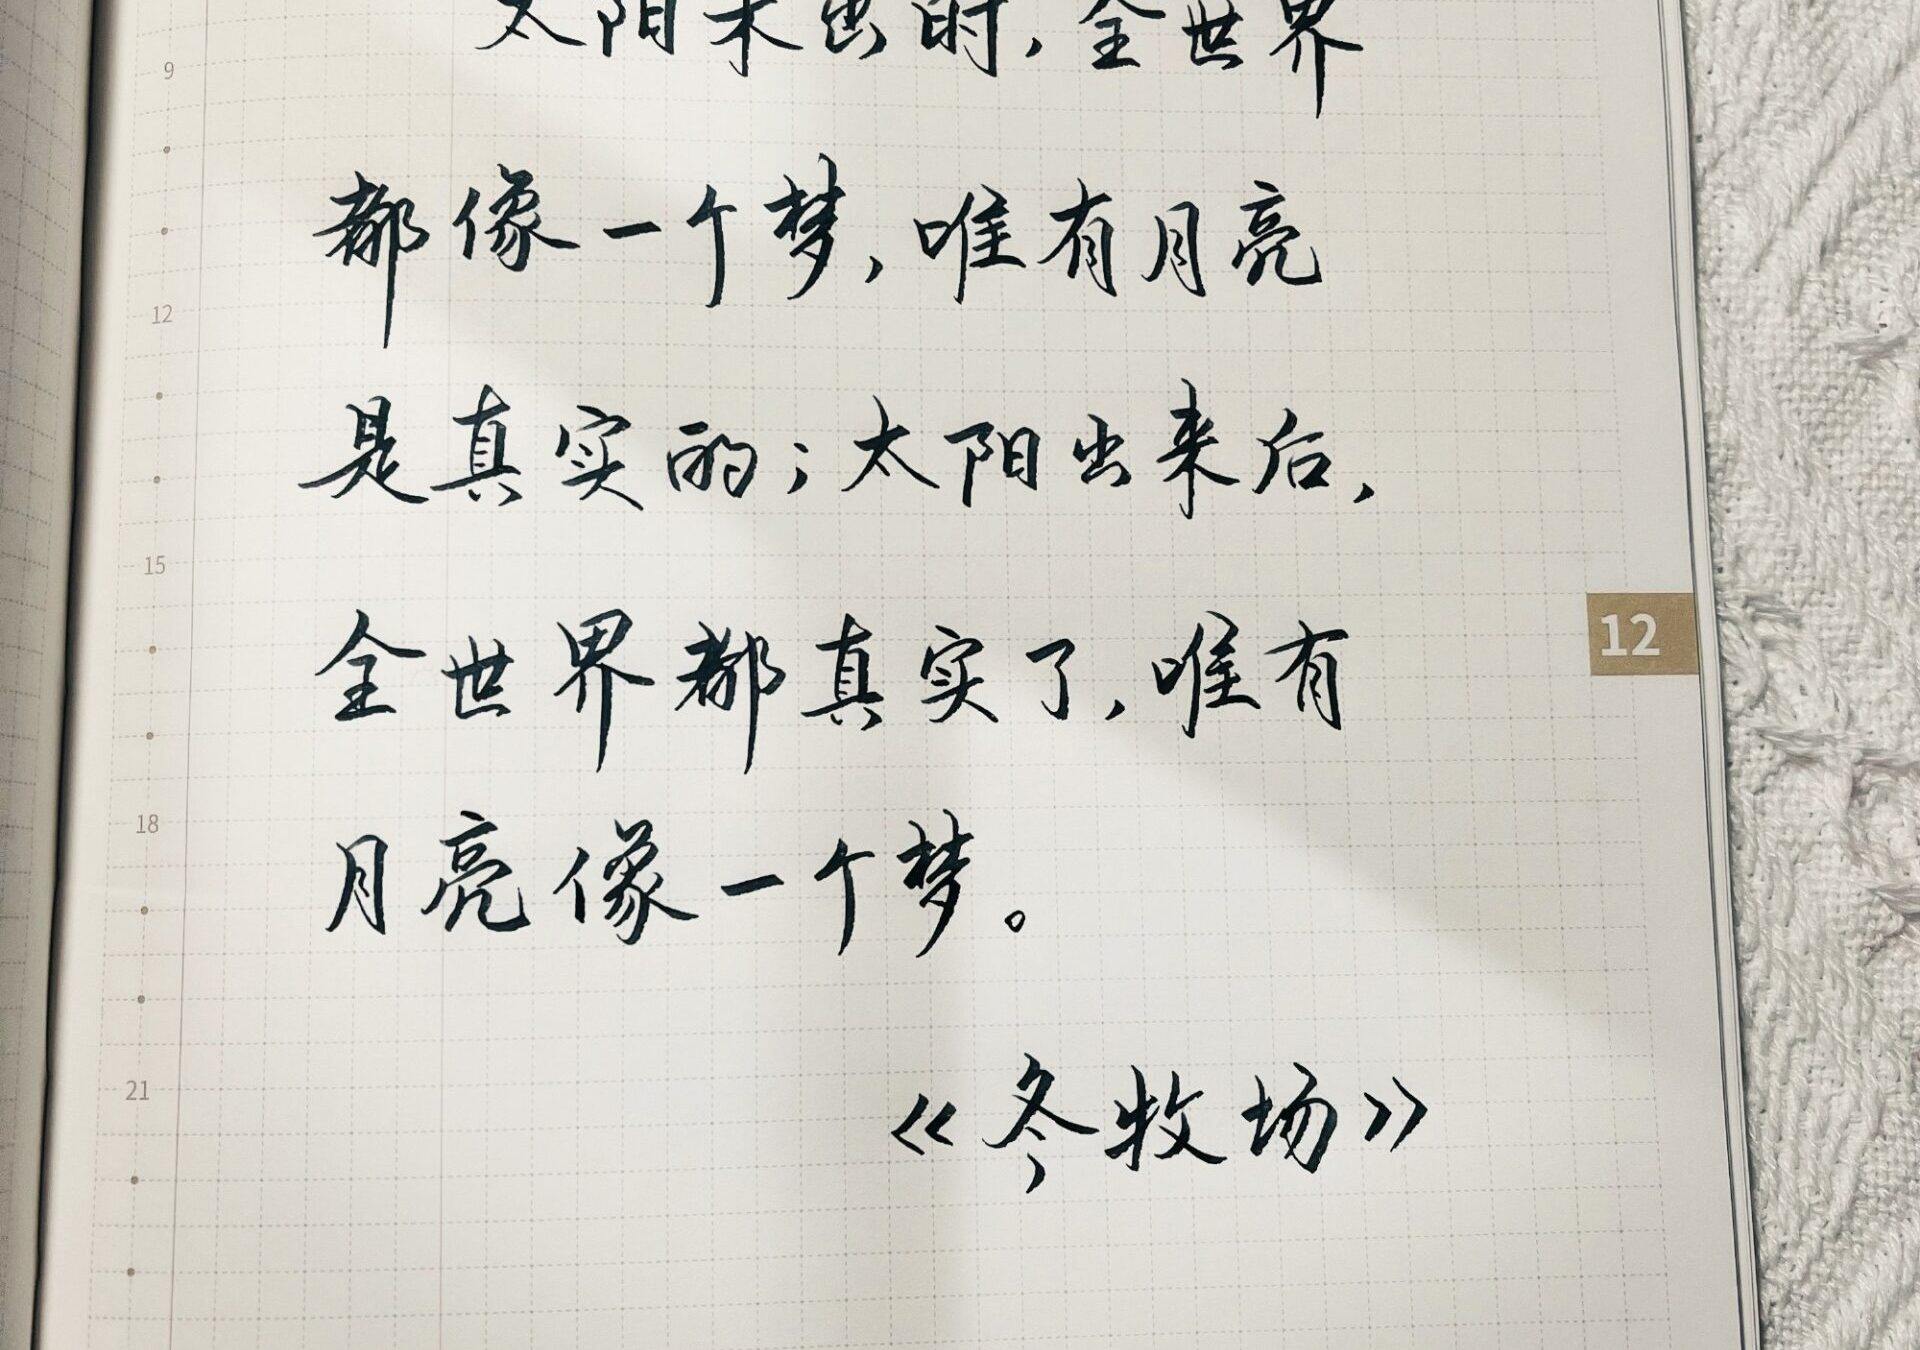 太阳未出时，全世界
9
都像一个梦，唯有月亮
12
是真实的；太阳出来后，
15
全世界都真实了，唯有
12
18
月亮像一个梦。
21
《冬牧场》